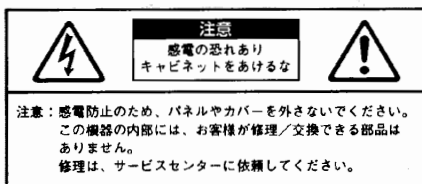 注意
感電の恐れあり
キャビネットをあけるな
注意：感電防止のため、パネルやカバーを外さないでください。
この機器の内部には、お客様が修理／交換できる部品は
ありません。
修理は、サービスセンターに依頼してください。